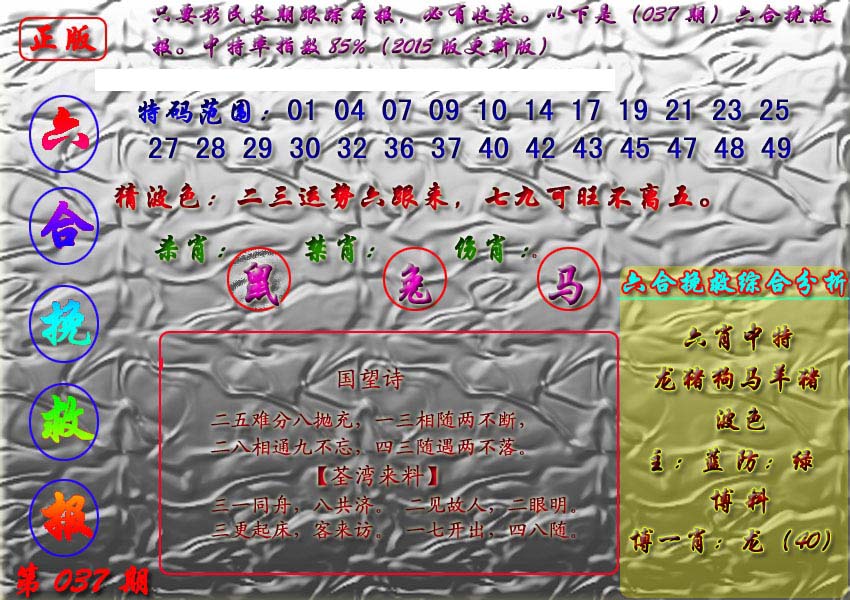 正版
只要彩民长期跟踪本报，必有收获。以下是（037期）六合挽救
报。中特率指数85%（2015版更新版）
六
合
挽
救
报
第037期
特码范围：01 04 07 09 10 14 17 19 21 23 25
27 28 29 30 32 36 37 40 42 43 45 47 48 49
猜波色：二三运势六跟来，七九可旺不离五。
杀肖：鼠 禁肖：兔 伤肖：马
国望诗
二五难分八抛充，一三相随两不断，
二八相通九不忘，四三随遇两不落。
【荃湾来料】
三一同舟，八共济。 二见故人，二眼明。
三更起床，客来访。 一七开出，四八随。
六合挽救综合分析
六肖中特
龙猪狗马羊猪
波色
主：蓝防：绿
博料
博一肖：龙（40）